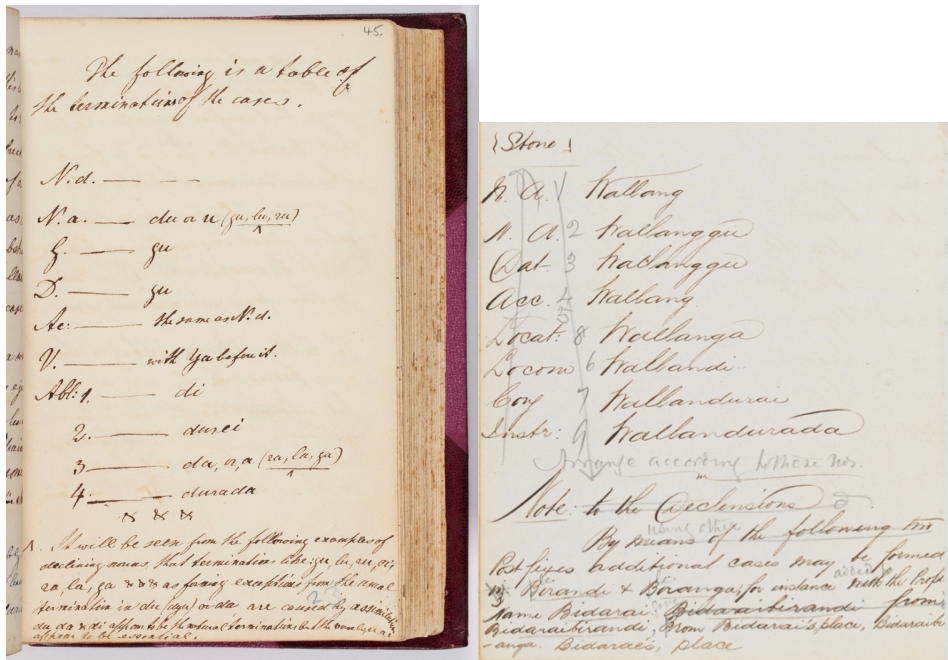 45.
The following is a table of
the termination of the cases.
N.d. — — —
N.a. — du or u (gu, lu, ru)
G. — gu
D. — gu
Ac: — the same as N.d.
V. — with ya before it.
Abl: 1. — di
2. — durei
3 — da, or, a (ra, la, ga)
4. — durada
It will be seen from the following examples of
declining nouns, that terminations like gu, lu, ru, or,
ra, la, ga as forming exceptions from the usual
termination in du (dyu) or da are caused by assimilation
du da & di appear to be the natural terminations but the vowels u a i
appear to be essential.
{Stone}
N. A. 1 Wallang
N. A. 2 Wallanggu
Dat. 3 Wallanggu
Acc. 4 Wallang
Locat: 8 Wallanga
Locom 6 Wallandi
Conj 7 Wallandurai
Instr: 9 Wallandurada
Arrange according to these nos.
Note: to the Declensions
using other
By means of the following two
Postfixes additional cases may be formed
added to
Birandi & Boranga, for instance with the Prop
name Bidarai Bidaraibirandi from
Bidaraibirandi, from Bidarai's place, Bidaraibi
-anga. Bidarae's, place